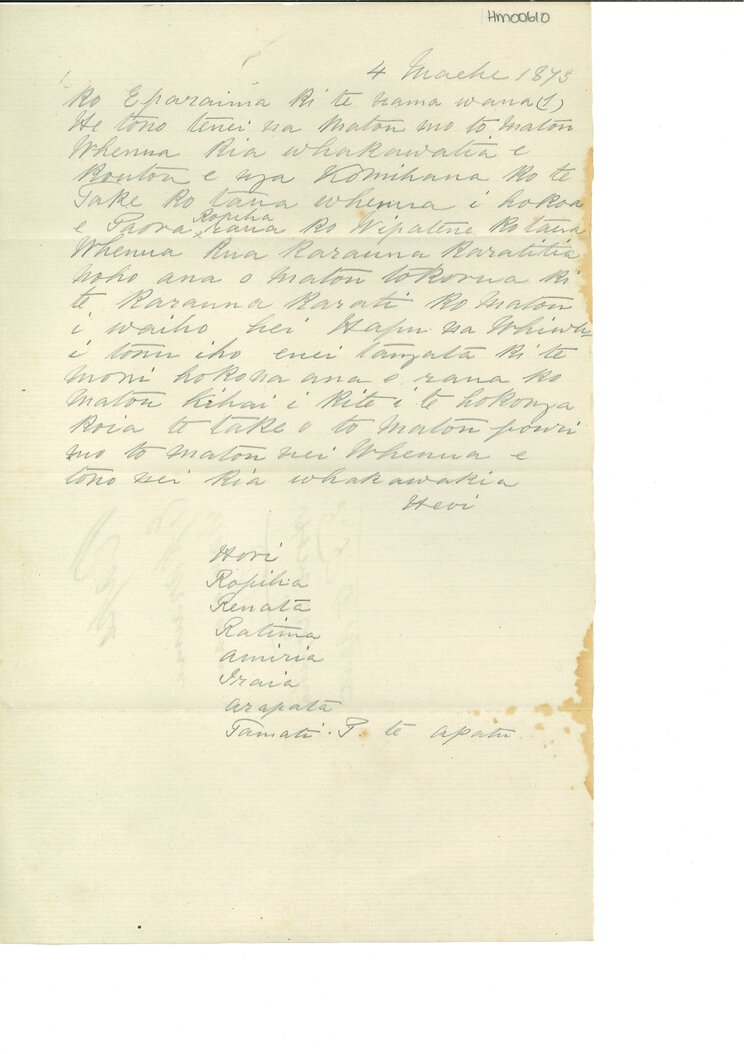 HM00610
4 Maehe 1873
ko Eparaima ki te nama wana (1)
He tono tenei na Matou mo to Matou
Whenua kia whakawatia e
koutou e nga Komihana ko te
Take ko taua whenua i hokoa
e Paora Ropiha raua ko Wipatene ko taua
Whenua kua karauna karatitia
noho ana o matou tokorua ki
te karauna karati ko Matou
i waiho hei Hapu na Whiwh-
i tonu iho enei tangata ki te
moni hokona ana e raua ko
Matou kihai i kite i te hokonga
koia te take o to Matou pouri
mo to matou nei Whenua e
tono nei kia whakawakia
Hevi
Hori
Ropiha
Renata
Ratima
Amiria
Iraia
Arapata
Tamati. P. te Apatu